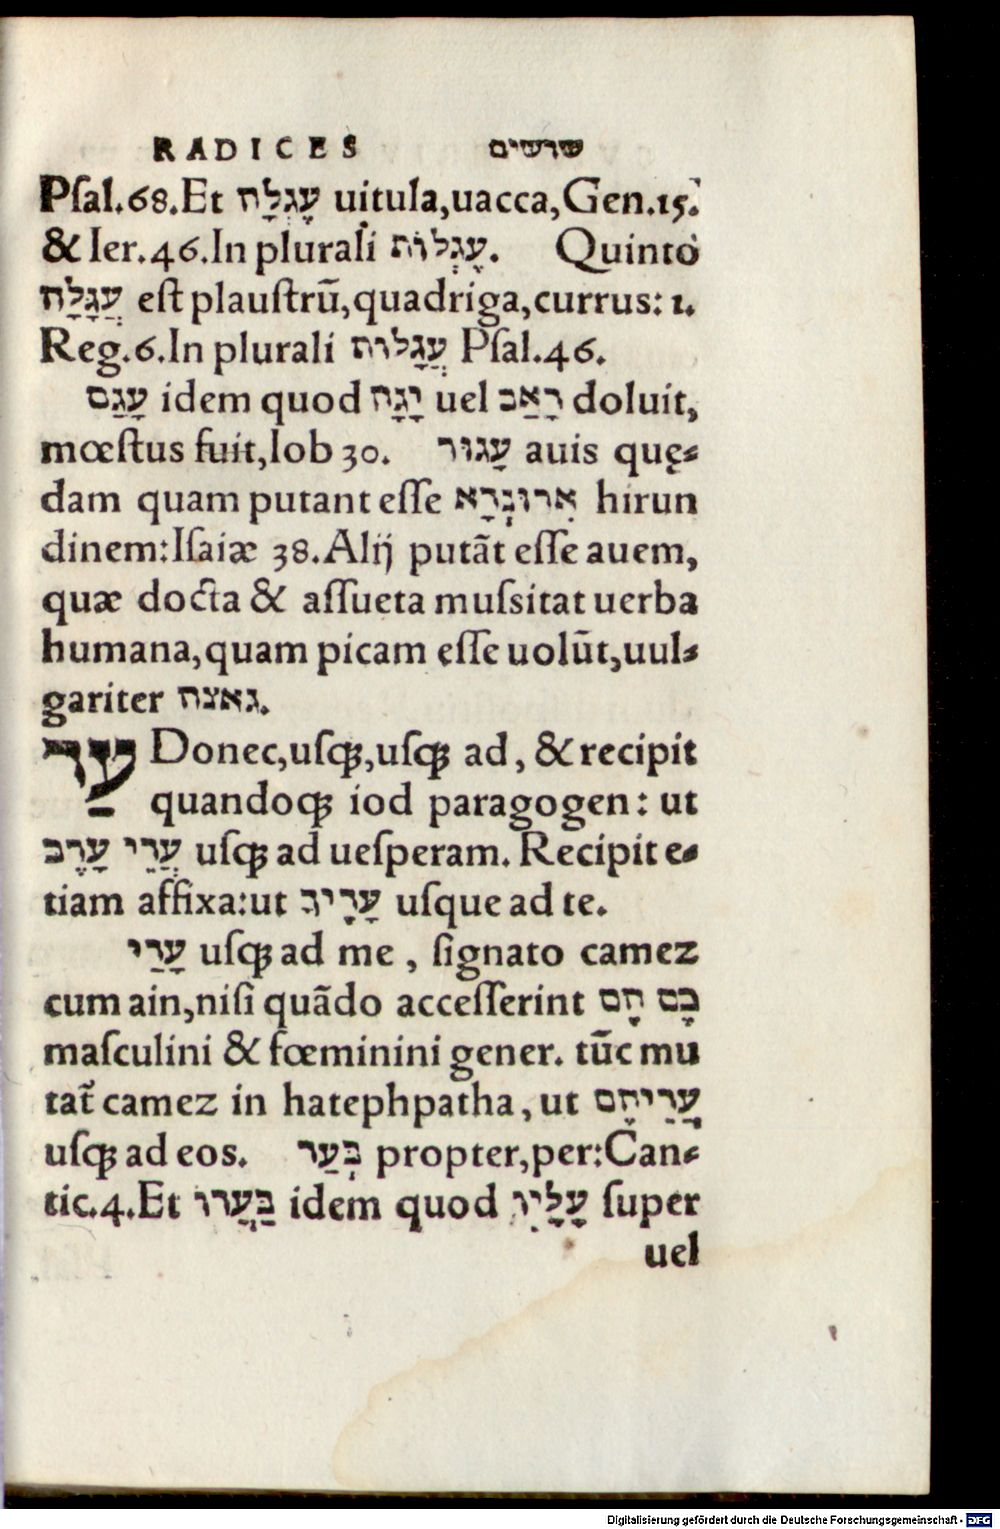 RADICES שרשים
Pſal.68.Et עֶגְלָה uitula,uacca,Gen.15.
& Ier.46.In plurali עֶגְלוֹת. Quinto
עֲגָלָה eſt plauſtrũ,quadriga,currus: 1.
Reg.6.In plurali עֲגָלוֹת Pſal.46.
עָגַם idem quod יָגָה uel דָאַב doluit,
mœſtus fuit,Iob 30. עָגוּר auis quę⸗
dam quam putant eſſe אִרונְדָא hirun
dinem:Iſaiæ 38.Alij putãt eſſe auem,
quæ docta & aſſueta muſsitat uerba
humana,quam picam eſſe uolũt,uul⸗
gariter גאצה.
עַד Donec,uſqꝫ,uſqꝫ ad, & recipit
quandoqꝫ iod paragogen: ut
עֲדֵי עָרֶב uſqꝫ ad ueſperam. Recipit e⸗
tiam affixa:ut עָדֶיךָ uſque ad te.
עָדַי uſqꝫ ad me, ſignato camez
cum ain,niſi quãdo acceſſerint כָם הָם
maſculini & fœminini gener. tũc mu
tat᷑ camez in hatephpatha, ut עֲדֵיהֶם
uſqꝫ ad eos. בְּעַד propter,per:Can⸗
tic.4.Et בַּעֲדוֹ idem quod עָלָיו ſuper
uel
Digitalisierung gefördert durch die Deutsche Forschungsgemeinschaft - DFG